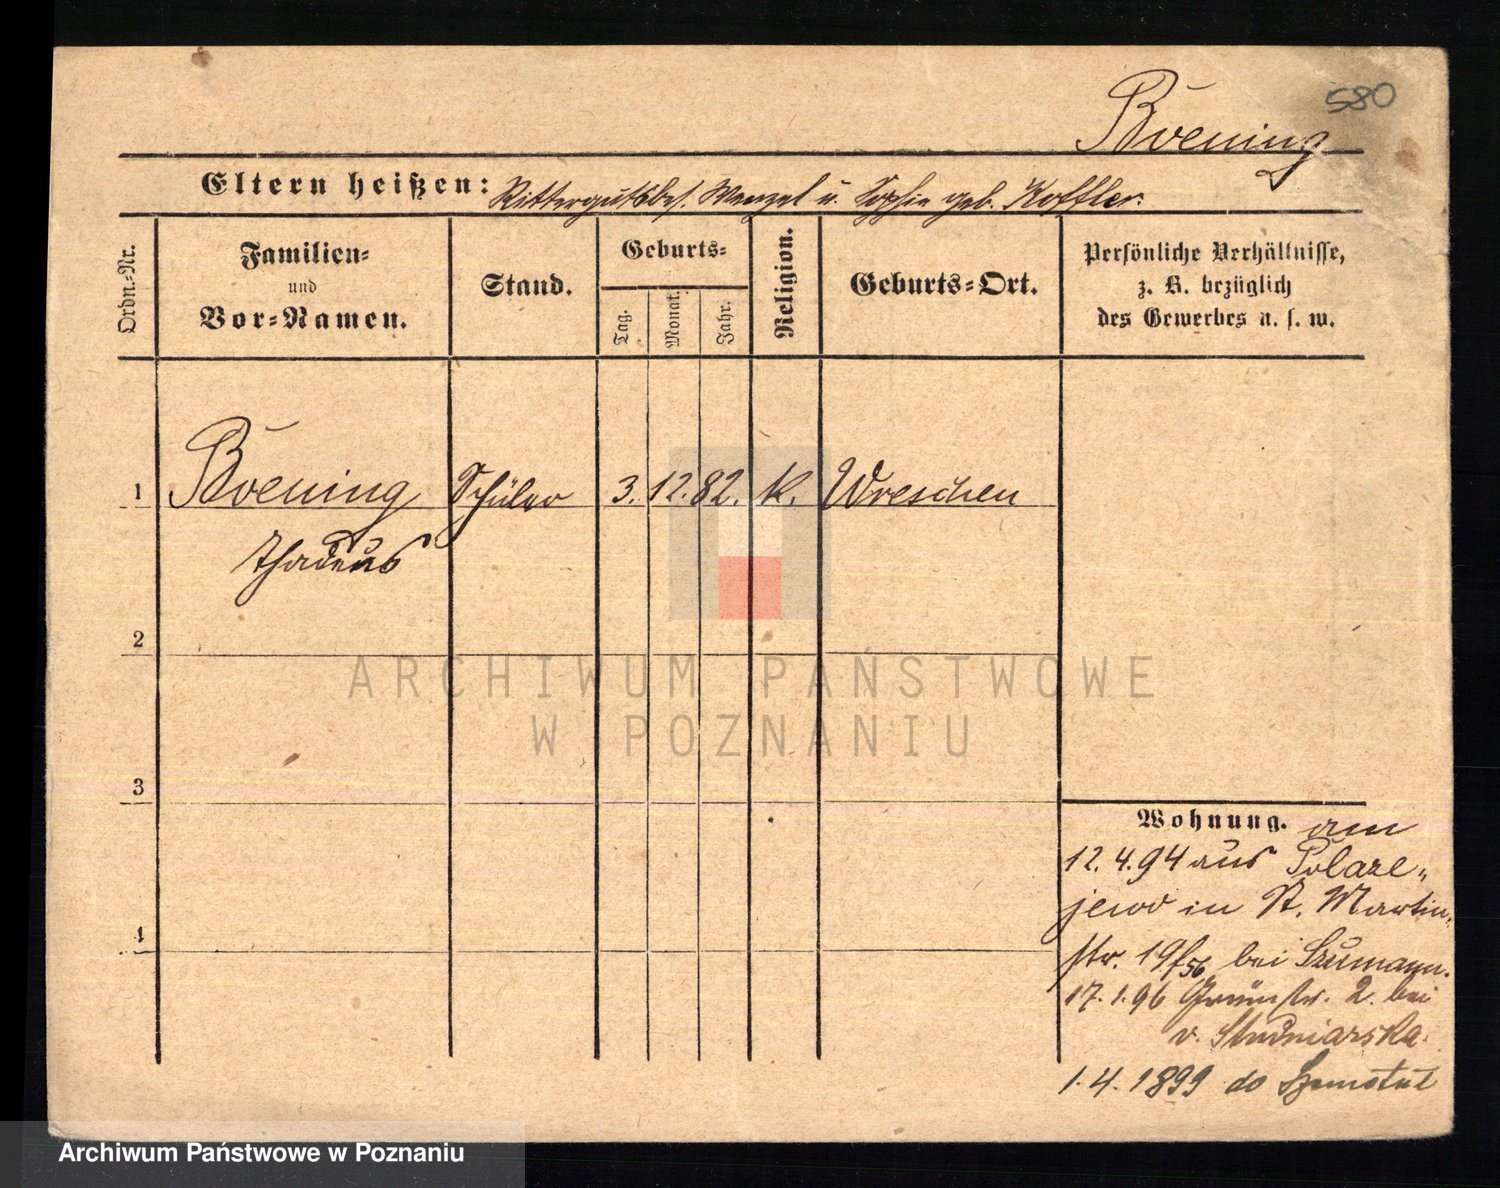 580
Broening
Eltern heißen: Rittergutsbes. Wenzel u. Sophie geb. Koffler.
Ordn.-Nr.
Familien- und Vor-Namen.
Stand.
Geburts-
Tag.
Monat.
Jahr.
Religion.
Geburts-Ort.
Persönliche Verhältnisse,
z. B. bezüglich
des Gewerbes u. s. w.
1 Broening Schüler 3. 12. 82. k. Wreschen
Thadeus
2
3
4
Wohnung. am
12.4.94 aus Polaze-
jewo in St. Martin-
str. 19/56 bei Szumann.
17.1.96 Grünstr. 2. bei
v. Studniarska.
1.4.1899 do
ARCHIWUM PAŃSTWOWE
W POZNANIU
Archiwum Państwowe w Poznaniu